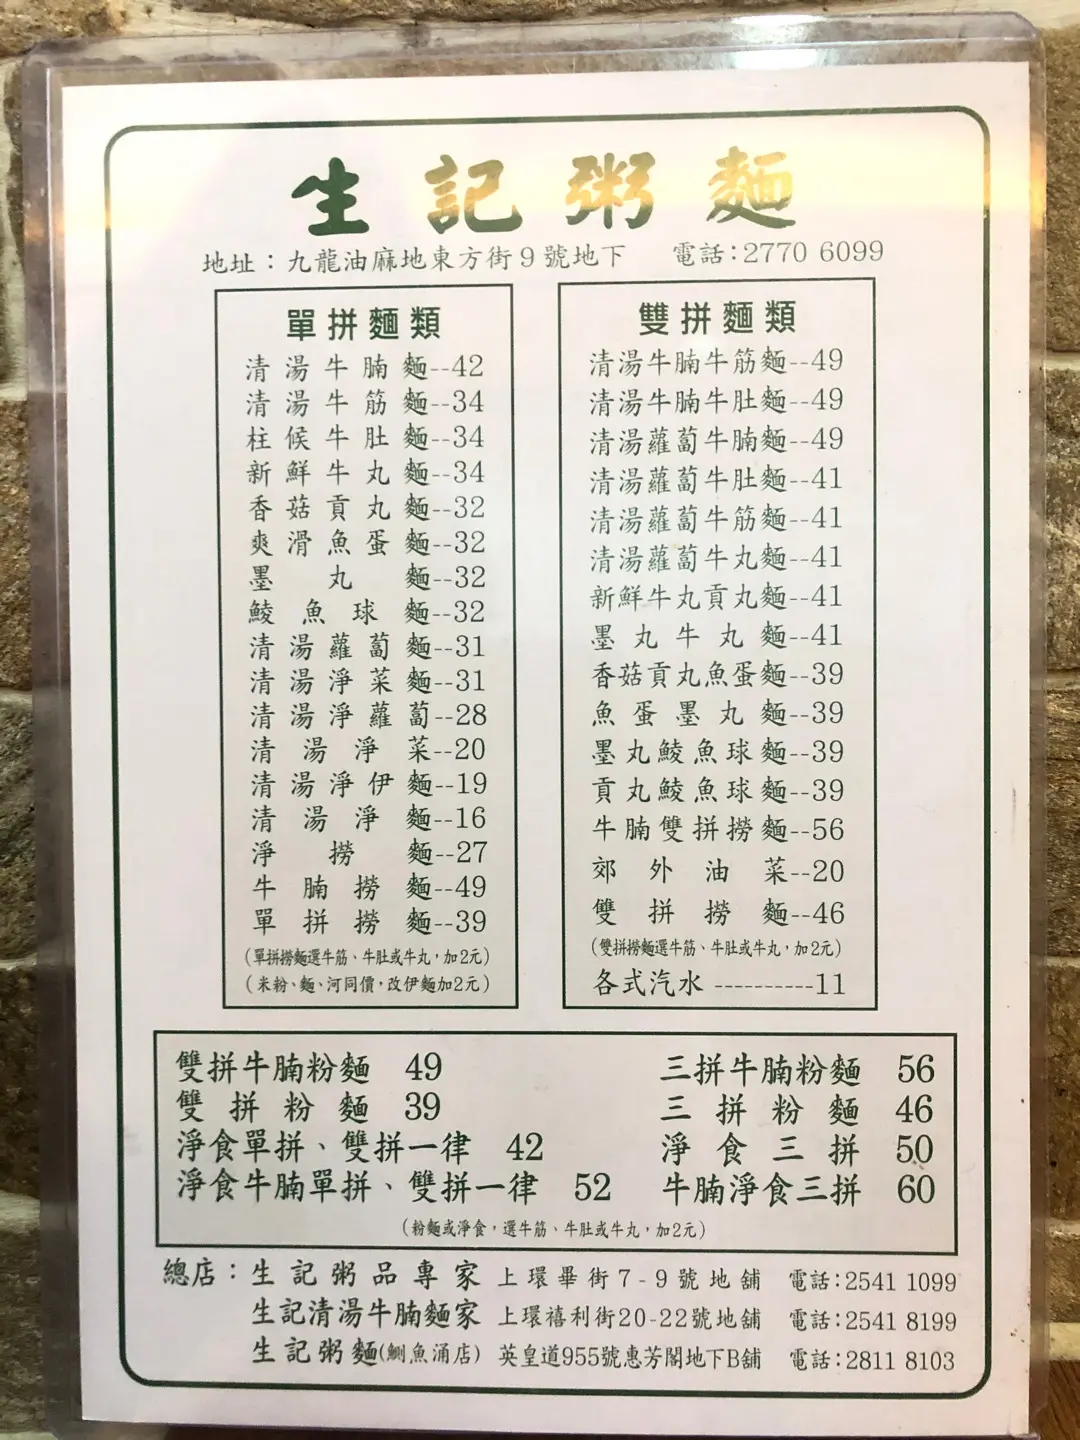 生記粥麵
地址：九龍油麻地東方街9號地下 電話:2770 6099
單拼麵類
清湯牛腩麵--42
清湯牛筋麵--34
柱候牛肚麵--34
新鮮牛丸麵--34
香菇貢丸麵--32
爽滑魚蛋麵--32
墨丸麵--32
鯪魚球麵--32
清湯蘿蔔麵--31
清湯淨菜麵--31
清湯淨蘿蔔--28
清湯淨菜--20
清湯淨伊麵--19
清湯淨麵--16
淨撈麵--27
牛腩撈麵--49
單拼撈麵--39
(單拼撈麵選牛筋、牛肚或牛丸，加2元)
(米粉、麵、河同價，改伊麵加2元)
雙拼麵類
清湯牛腩牛筋麵--49
清湯牛腩牛肚麵--49
清湯蘿蔔牛腩麵--49
清湯蘿蔔牛肚麵--41
清湯蘿蔔牛筋麵--41
清湯蘿蔔牛丸麵--41
新鮮牛丸貢丸麵--41
墨丸牛丸麵--41
香菇貢丸魚蛋麵--39
魚蛋墨丸麵--39
墨丸鯪魚球麵--39
貢丸鯪魚球麵--39
牛腩雙拼撈麵--56
郊外油菜--20
雙拼撈麵--46
(雙拼撈麵選牛筋、牛肚或牛丸，加2元)
各式汽水----------11
雙拼牛腩粉麵 49
雙拼粉麵 39
淨食單拼、雙拼一律 42
淨食牛腩單拼、雙拼一律 52
三拼牛腩粉麵 56
三拼粉麵 46
淨食三拼 50
牛腩淨食三拼 60
(粉麵或淨食，選牛筋、牛肚或牛丸，加2元)
總店：生記粥品專家 上環畢街7-9號地舖 電話:2541 1099
生記清湯牛腩麵家 上環禧利街20-22號地舖 電話:2541 8199
生記粥麵(鰂魚涌店) 英皇道955號惠芳閣地下B舖 電話:2811 8103